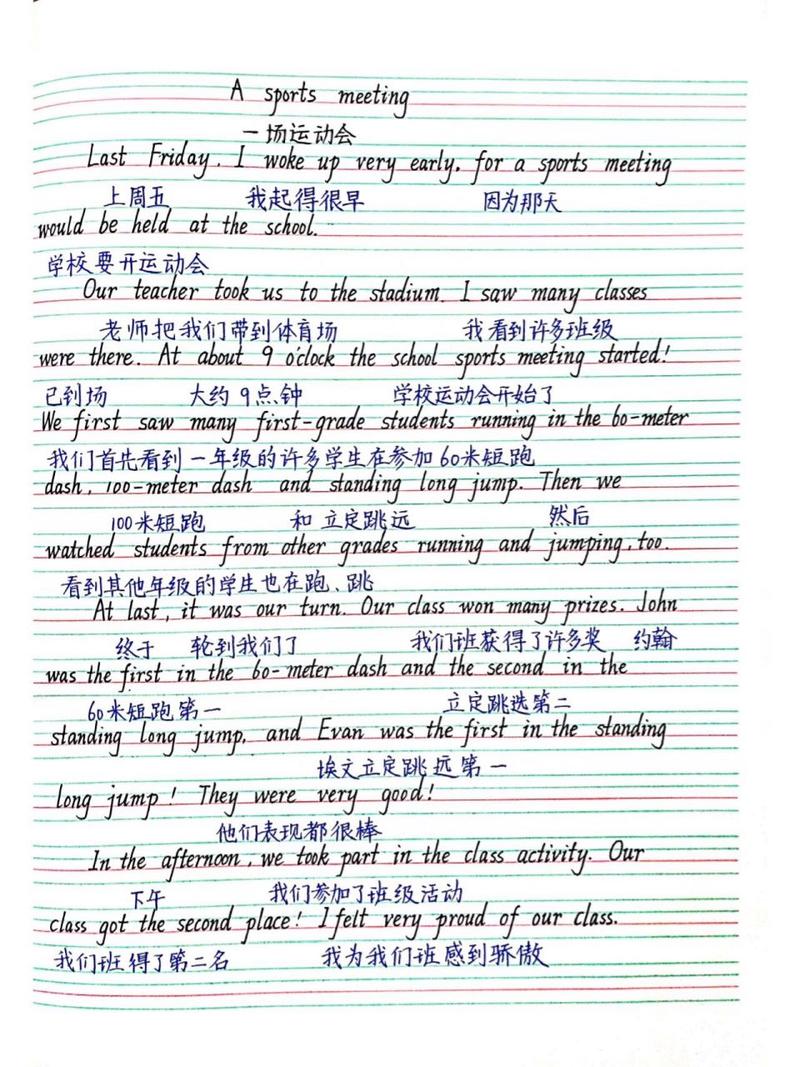 A sports meeting
一场运动会
Last Friday, I woke up very early, for a sports meeting
上周五 我起得很早 因为那天
would be held at the school.
学校要开运动会
Our teacher took us to the stadium. I saw many classes
老师把我们带到体育场 我看到许多班级
were there. At about 9 o'clock the school sports meeting started!
已到场 大约9点钟 学校运动会开始了
We first saw many first-grade students running in the 60-meter
我们首先看到一年级的许多学生在参加60米短跑
dash, 100-meter dash and standing long jump. Then we
100米短跑 和立定跳远 然后
watched students from other grades running and jumping, too.
看到其他年级的学生也在跑、跳
At last, it was our turn. Our class won many prizes. John
终于 轮到我们了 我们班获得了许多奖 约翰
was the first in the 60-meter dash and the second in the
60米短跑第一 立定跳选第二
standing long jump, and Evan was the first in the standing
埃文立定跳远第一
long jump! They were very good!
他们表现都很棒
In the afternoon, we took part in the class activity. Our
下午 我们参加了班级活动
class got the second place! I felt very proud of our class.
我们班得了第二名 我为我们班感到骄傲